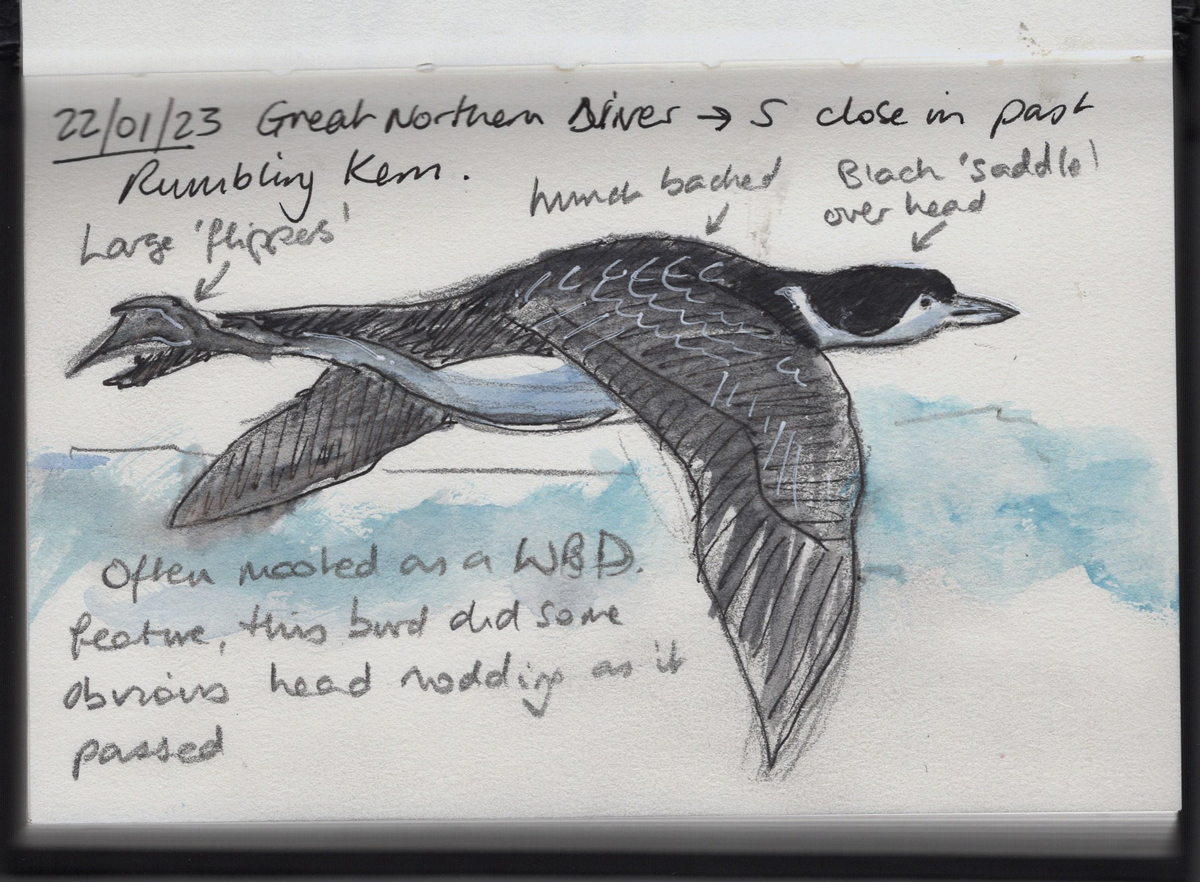 22/01/23 Great Northern Diver → S close in past
Rumbling Kern.
Large 'flippers'
hunch backed
Black 'saddle'
over head
Often mooted as a WBD.
feature, this bird did some
obvious head nodding as it
passed